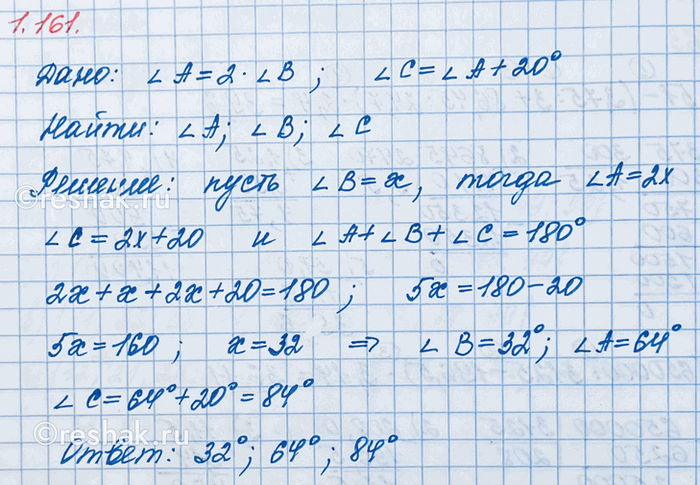 1.161.
Дано: ∠A=2·∠B; ∠C=∠A+20°
Найти: ∠A; ∠B; ∠C
Решение: пусть ∠B=x, тогда ∠A=2x
∠C=2x+20 и ∠A+∠B+∠C=180°
2x+x+2x+20=180; 5x=180-20
5x=160; x=32 ⇒ ∠B=32°; ∠A=64°
∠C=64°+20°=84°
Ответ: 32°; 64°; 84°
reshak.ru
reshak.ru
reshak.ru